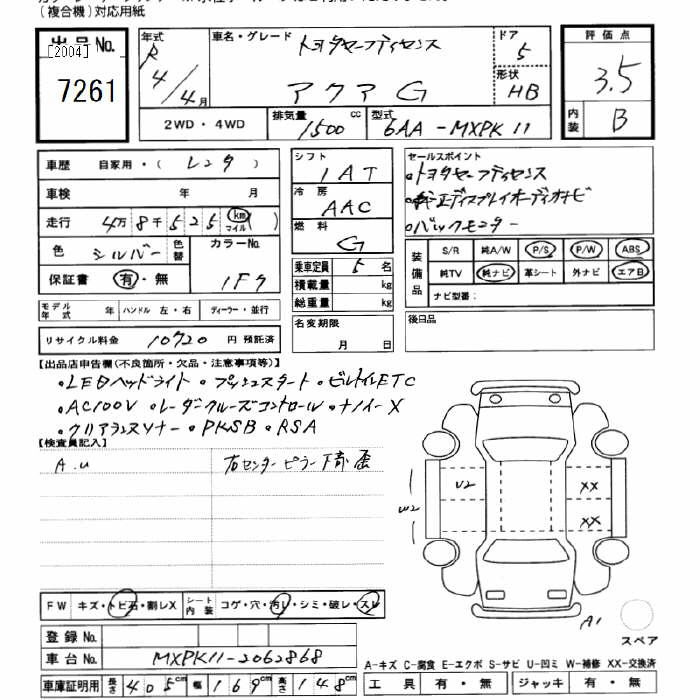 (複合機)対応用紙
出品No.
[2004]
7261
年式 R 4/4月
車名・グレード トヨタセーフティセンス
アクア G
ドア 5
形状 HB
評価点 3.5
内装 B
2WD・4WD
排気量 1500 cc
型式 6AA-MXPK11
車歴 自家用・(レンタ)
車検 年 月
走行 4万8千525 km マイル ( )
色 シルバー 色替 カラーNo. 1F7
保証書 有・無
シフト 1AT
冷房 AAC
燃料 G
乗車定員 5名
積載量 kg
総重量 kg
セールスポイント
・トヨタセーフティセンス
・純正ディスプレイオーディオナビ
・バックモニター
装備品 S/R 純A/W P/S P/W ABS
純TV 純ナビ 革シート 外ナビ エアB
ナビ型番:
モデル年式 年 ハンドル 左・右 ディーラー・並行
リサイクル料金 10720 円 預託済
名変期限 月 日
後日品
【出品店申告欄(不良箇所・欠品・注意事項等)】
・LEDヘッドライト ・プッシュスタート ・ビルトインETC
・AC100V ・レーダークルーズコントロール ・ナノイーX
・クリアランスソナー ・PKSB ・RSA
【検査員記入】
A.U 右センターピラー下部 歪
W2 U2 XX
XX
A1
FW キズ・トビ石・割レX シート内装 コゲ・穴・汚レ・シミ・破レ・スレ
登録No.
車台No. MXPK11-2062868
車庫証明用 長さ 405cm 幅 169cm 高さ 148cm
スペア
A-キズ C-腐食 E-エクボ S-サビ U-凹ミ W-補修 XX-交換済
工具 有・無 ジャッキ 有・無